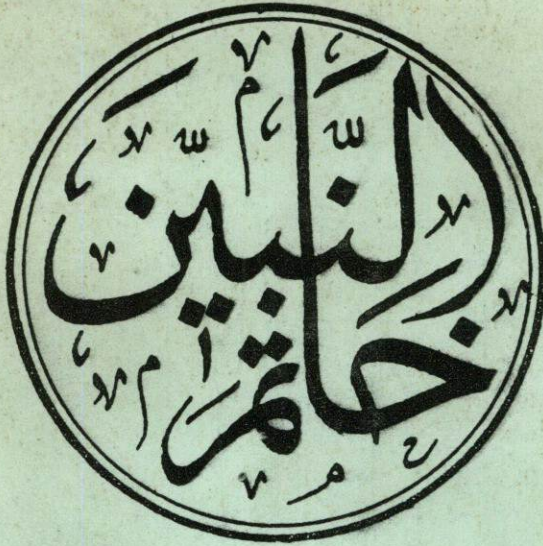 خَاتَمَ
النَّبِيّٖنَ